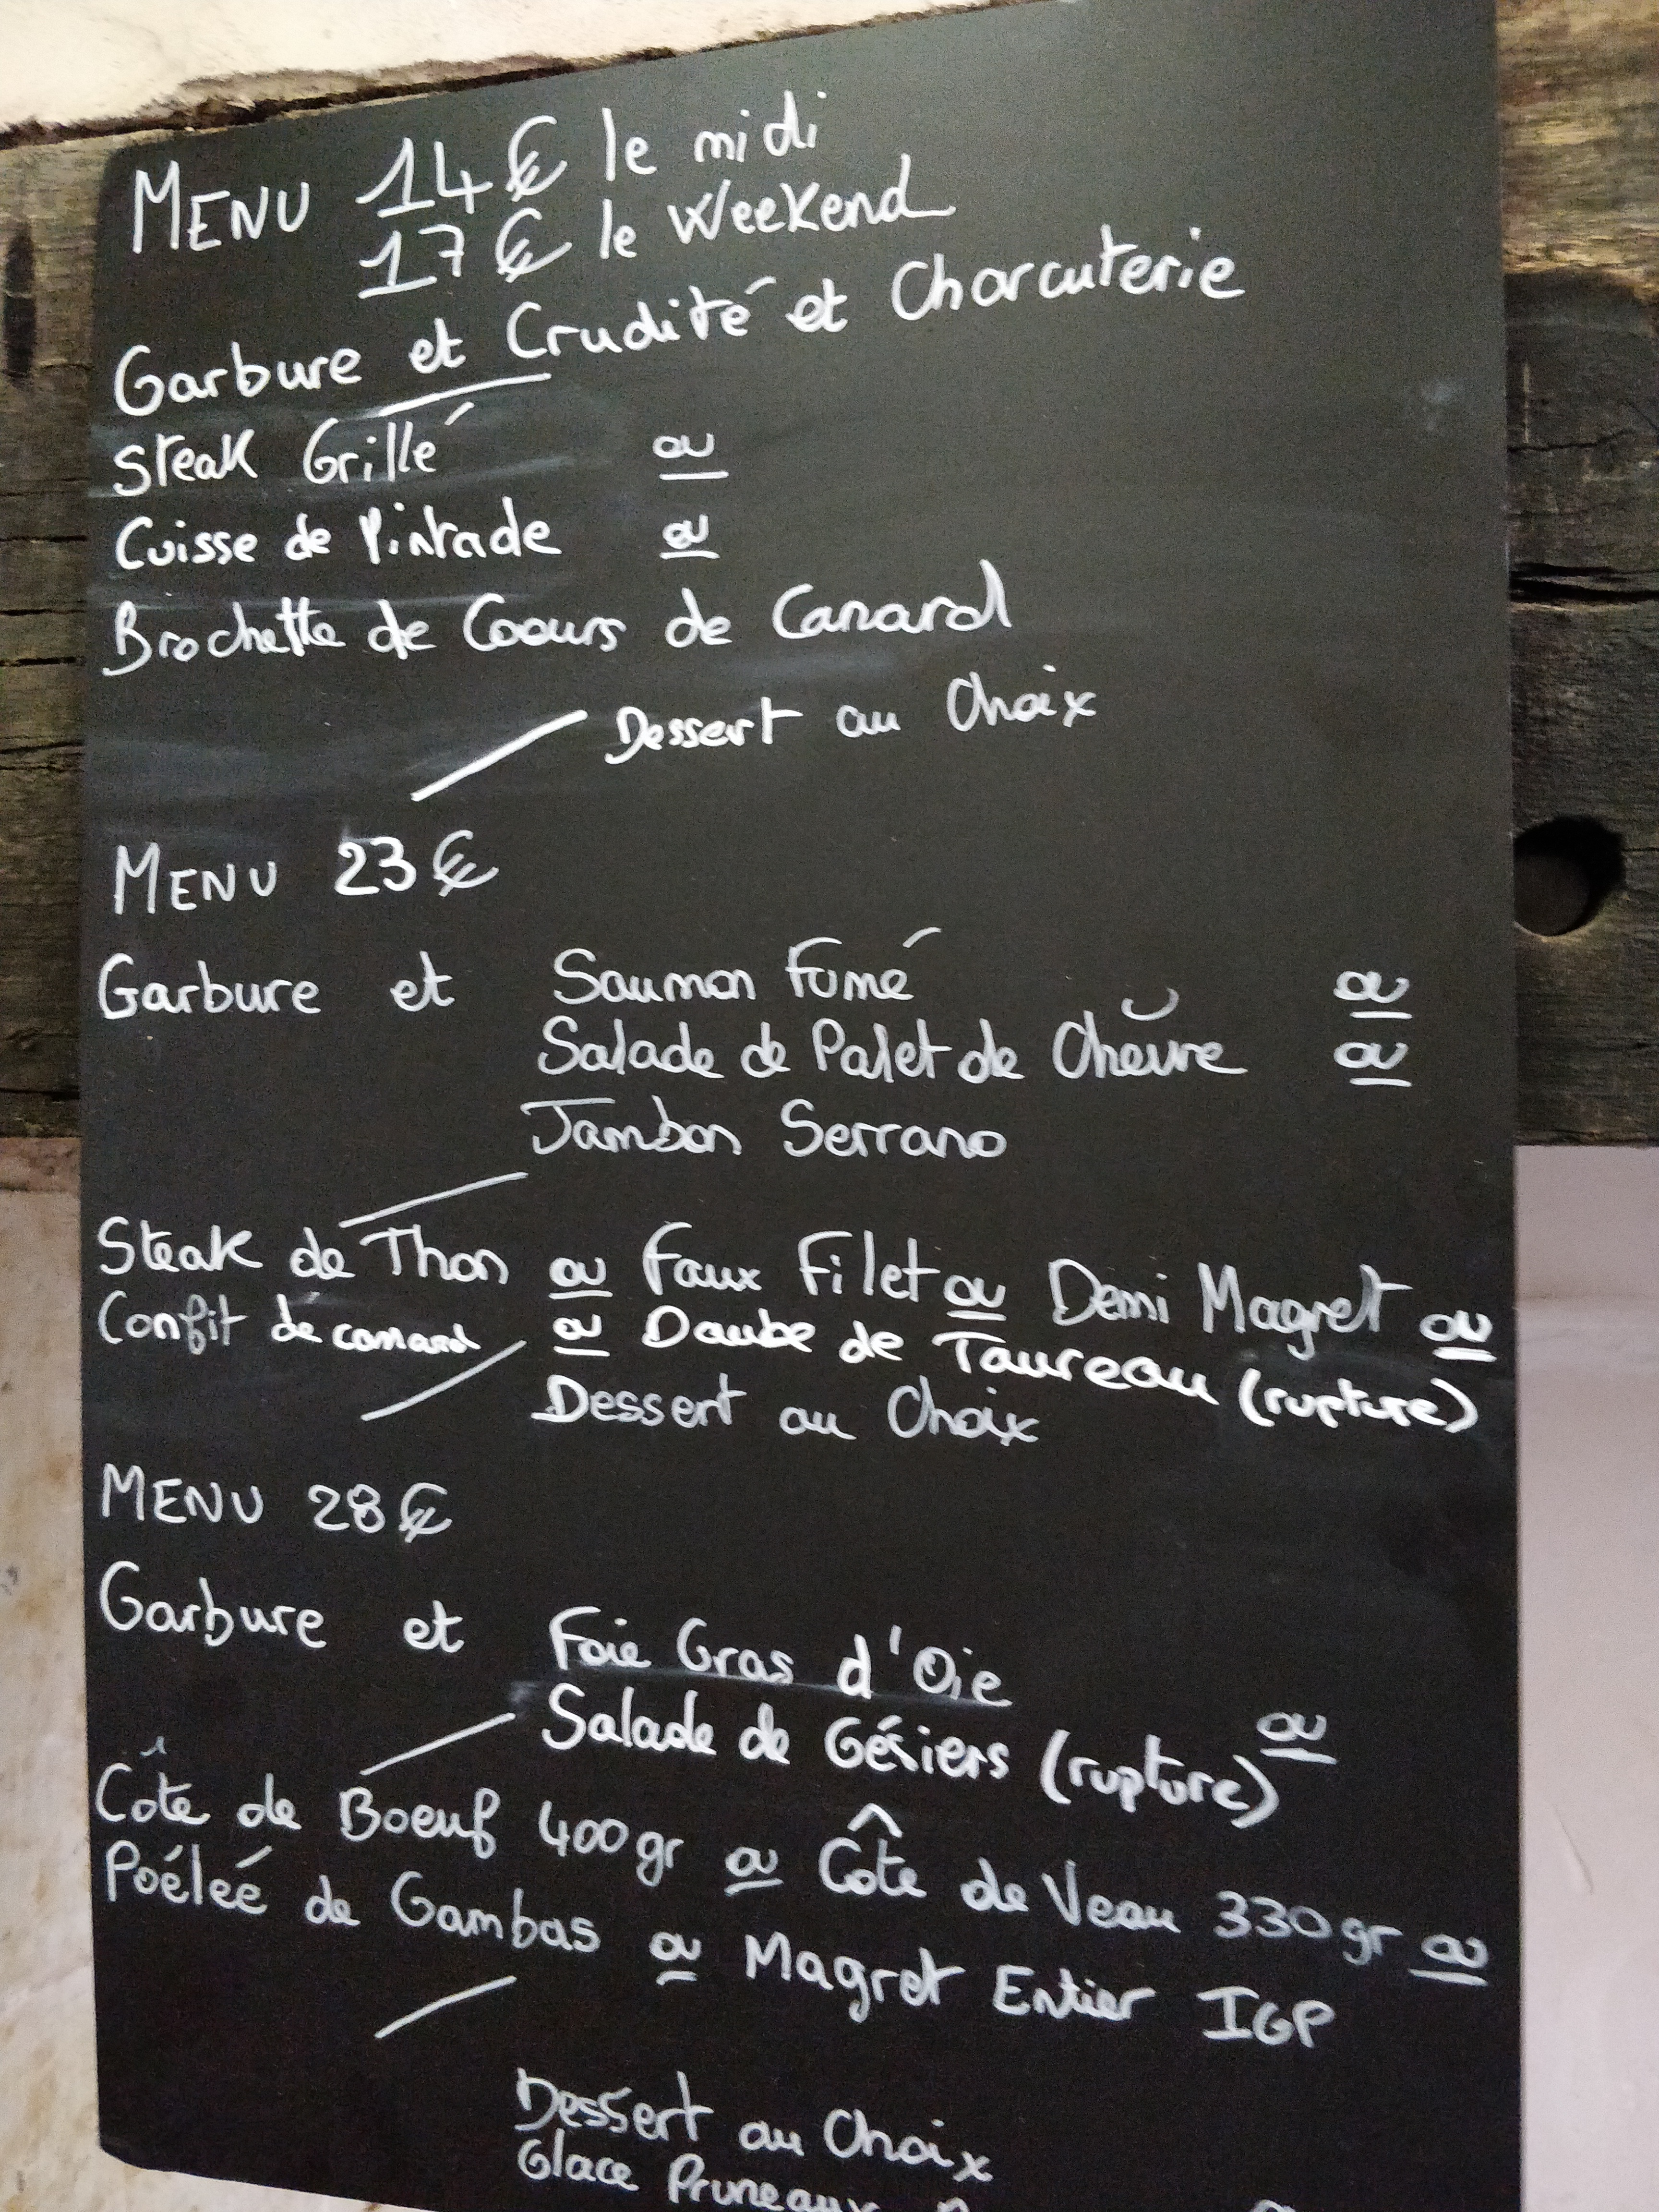 MENU 14€ le midi
17€ le Weekend
Garbure et Crudité et Charcuterie
Steak Grillé ou
Cuisse de Pintade ou
Brochette de Coeurs de Canard
Dessert au Choix
MENU 23€
Garbure et Saumon Fumé ou
Salade de Palet de Chèvre ou
Jambon Serrano
Steak de Thon ou Faux Filet ou Demi Magret ou
Confit de canard ou Daube de Taureau (rupture)
Dessert au Choix
MENU 28€
Garbure et Foie Gras d'Oie
ou
Salade de Gésiers (rupture)
Côte de Boeuf 400gr ou Côte de Veau 330gr ou
Poéleé de Gambas ou Magret Entier IGP
Dessert au Choix
Glace Pruneaux